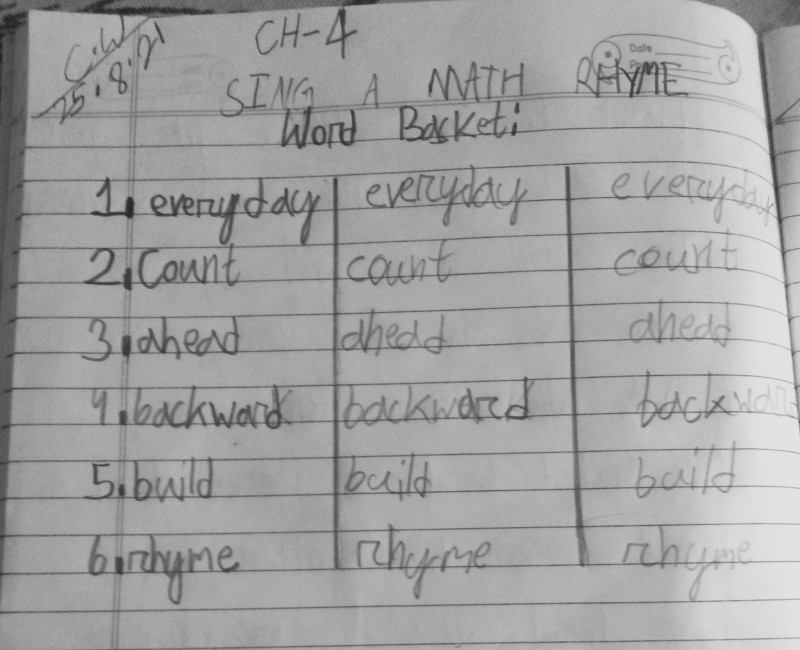 C.W
25.8.21
CH-4
Date
SING A MATH RHYME
Word Basket:
1. everyday everyday everyday
2. Count count count
3. ahead ahead ahead
4. backward backward backward
5. build build build
6. rhyme rhyme rhyme